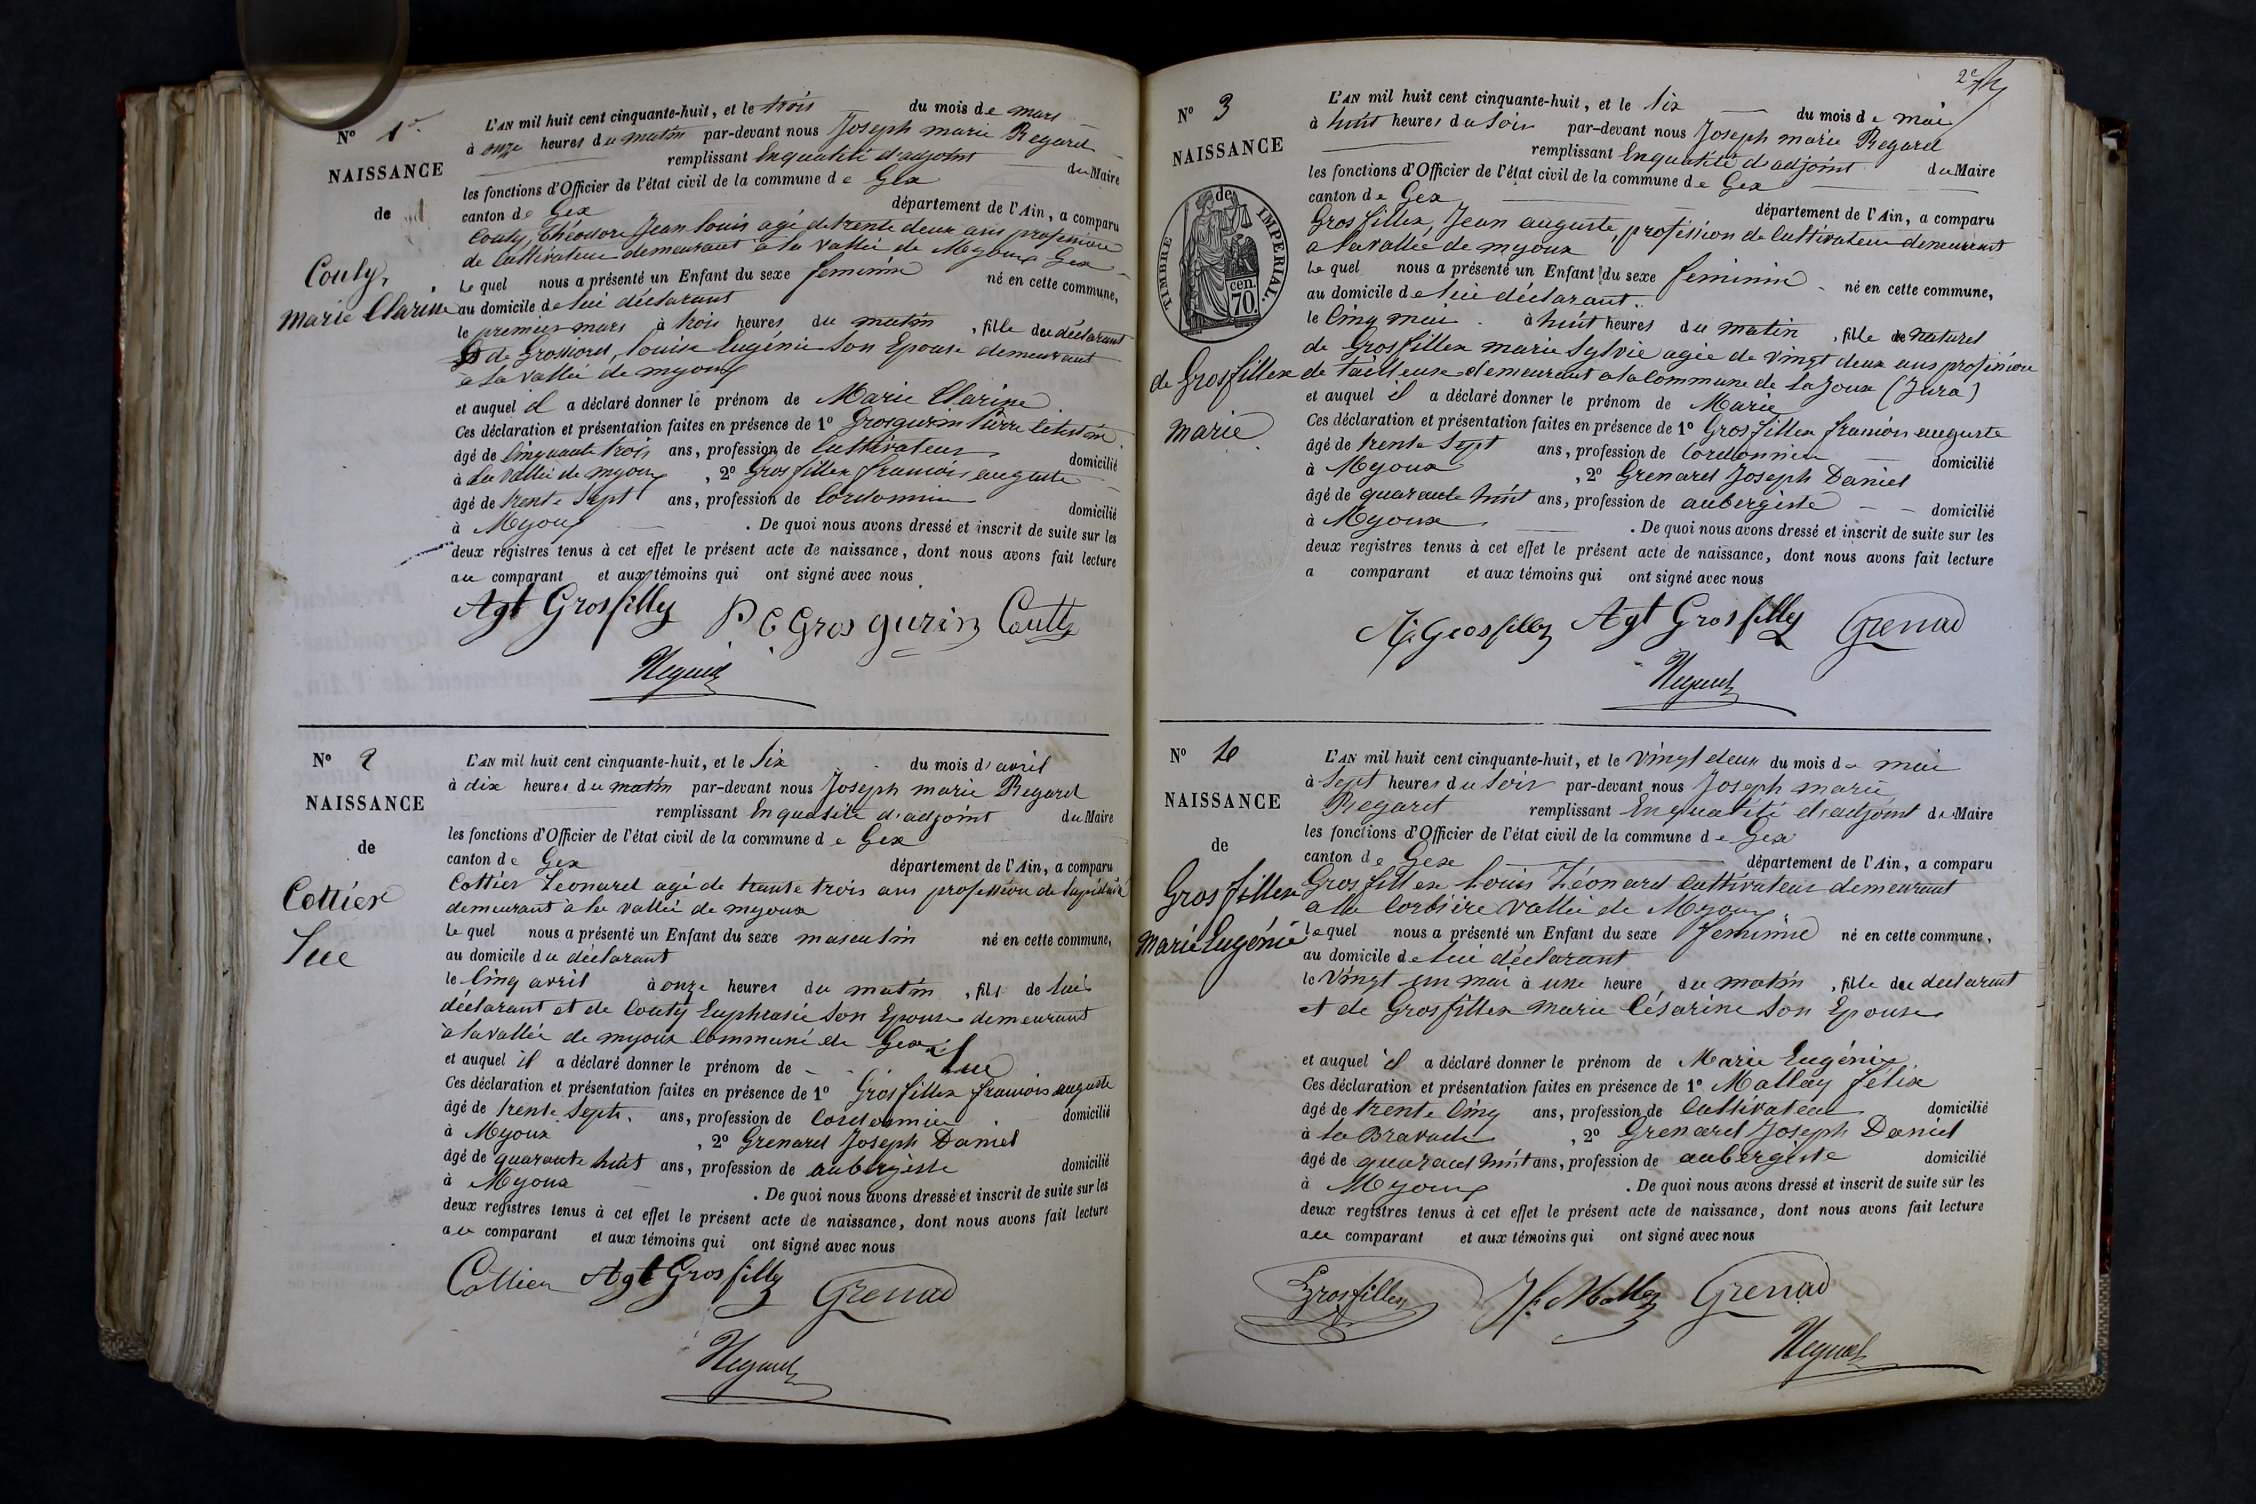 N° 1er
NAISSANCE
de
Couty,
Marie Clarine
L'AN mil huit cent cinquante-huit, et le trois du mois de mars
à onze heures du matin par-devant nous Joseph marie Regard
remplissant En qualité d'adjoint du Maire
les fonctions d'Officier de l'état civil de la commune de Gex
canton de Gex département de l'Ain, a comparu
Couty, Théodore Jean Louis agé de trente deux ans profession
de Cultivateur demeurant à la vallée de Myoux Gex
Le quel nous a présenté un Enfant du sexe feminin né en cette commune,
au domicile de lui déclarant
le premier mars à trois heures du matin, fille du déclarant
de Grossiord, Louise Eugénie Son Epouse demeurant
à la vallée de myoux
et auquel il a déclaré donner le prénom de Marie Clarine
Ces déclaration et présentation faites en présence de 1° Grosgurin Pierre Célestin
âgé de Cinquante trois ans, profession de Cultivateur domicilié
à La vallée de myoux, 2° Grosfillex francois auguste
âgé de trente Sept ans, profession de Cordonnier domicilié
à Myoux. De quoi nous avons dressé et inscrit de suite sur les
deux registres tenus à cet effet le présent acte de naissance, dont nous avons fait lecture
au comparant et aux témoins qui ont signé avec nous
Agt Grosfilley P C Grosgurin Couty
Regard
N° 2
NAISSANCE
de
Cottier
Luc
L'AN mil huit cent cinquante-huit, et le Six du mois d'avril
à dix heures du matin par-devant nous Joseph marie Regard
remplissant En qualité d'adjoint du Maire
les fonctions d'Officier de l'état civil de la commune de Gex
canton de Gex département de l'Ain, a comparu
Cottier Leonard agé de trente trois ans profession de lapidaire
demeurant à la vallée de myoux
Le quel nous a présenté un Enfant du sexe masculin né en cette commune,
au domicile du déclarant
le Cinq avril à onze heures du matin, fils de lui
déclarant et de Couty Euphrasie Son Epouse demeurant
à la vallée de myoux Commune de Gex
et auquel il a déclaré donner le prénom de Luc
Ces déclaration et présentation faites en présence de 1° Grosfillex francois auguste
âgé de trente Sept ans, profession de Cordonnier domicilié
à Myoux, 2° Grenard Joseph Daniel
âgé de quarante huit ans, profession de aubergiste domicilié
à Myoux. De quoi nous avons dressé et inscrit de suite sur les
deux registres tenus à cet effet le présent acte de naissance, dont nous avons fait lecture
au comparant et aux témoins qui ont signé avec nous
Cottier Agt Grosfilley Grenard
Regard
N° 3
NAISSANCE
de
TIMBRE IMPERIAL.
cen.
70.
de Grosfillex
Marie
L'AN mil huit cent cinquante-huit, et le Six du mois de mai
à huit heures du Soir par-devant nous Joseph marie Regard
remplissant En qualité d'adjoint du Maire
les fonctions d'Officier de l'état civil de la commune de Gex
canton de Gex département de l'Ain, a comparu
Grosfillex, Jean auguste, profession de Cultivateur demeurant
a la vallée de myoux
Le quel nous a présenté un Enfant du sexe feminin né en cette commune,
au domicile de lui déclarant
le Cinq mai à huit heures du matin, fille naturel
de Grosfillex marie Sylvie agée de vingt deux ans profession
de tailleuse demeurant a la Commune de la Joux (Jura)
et auquel il a déclaré donner le prénom de Marie
Ces déclaration et présentation faites en présence de 1° Grosfillex francois auguste
âgé de trente Sept ans, profession de Cordonnier domicilié
à Myoux, 2° Grenard Joseph Daniel
âgé de quarante huit ans, profession de aubergiste domicilié
à Myoux. De quoi nous avons dressé et inscrit de suite sur les
deux registres tenus à cet effet le présent acte de naissance, dont nous avons fait lecture
a comparant et aux témoins qui ont signé avec nous
Grosfilley Agt Grosfilley Grenard
Regard
N° 4
NAISSANCE
de
Grosfillex
Marie Eugénie
L'AN mil huit cent cinquante-huit, et le vingt deux du mois de mai
à Sept heures du Soir par-devant nous Joseph marie
Regard remplissant En qualité d'adjoint du Maire
les fonctions d'Officier de l'état civil de la commune de Gex
canton de Gex département de l'Ain, a comparu
Grosfillex Louis Léonard Cultivateur demeurant
a la Corbière vallée de Myoux
Le quel nous a présenté un Enfant du sexe feminin né en cette commune,
au domicile de lui déclarant
le vingt un mai à une heure du matin, fille du déclarant
et de Grosfillex Marie Césarine Son Epouse
et auquel il a déclaré donner le prénom de Marie Eugénie
Ces déclaration et présentation faites en présence de 1° Mallay félix
âgé de trente Cinq ans, profession de Cultivateur domicilié
à la, 2° Grenard Joseph Daniel
âgé de quarant huit ans, profession de aubergiste domicilié
à Myoux. De quoi nous avons dressé et inscrit de suite sur les
deux registres tenus à cet effet le présent acte de naissance, dont nous avons fait lecture
au comparant et aux témoins qui ont signé avec nous
Grosfillex Grenard
Regard